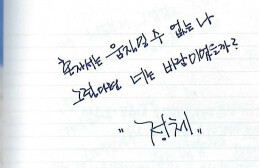 혼자서는 움직일 수 없는 나
그렇다면 너는 바람이었을까?
"정체"